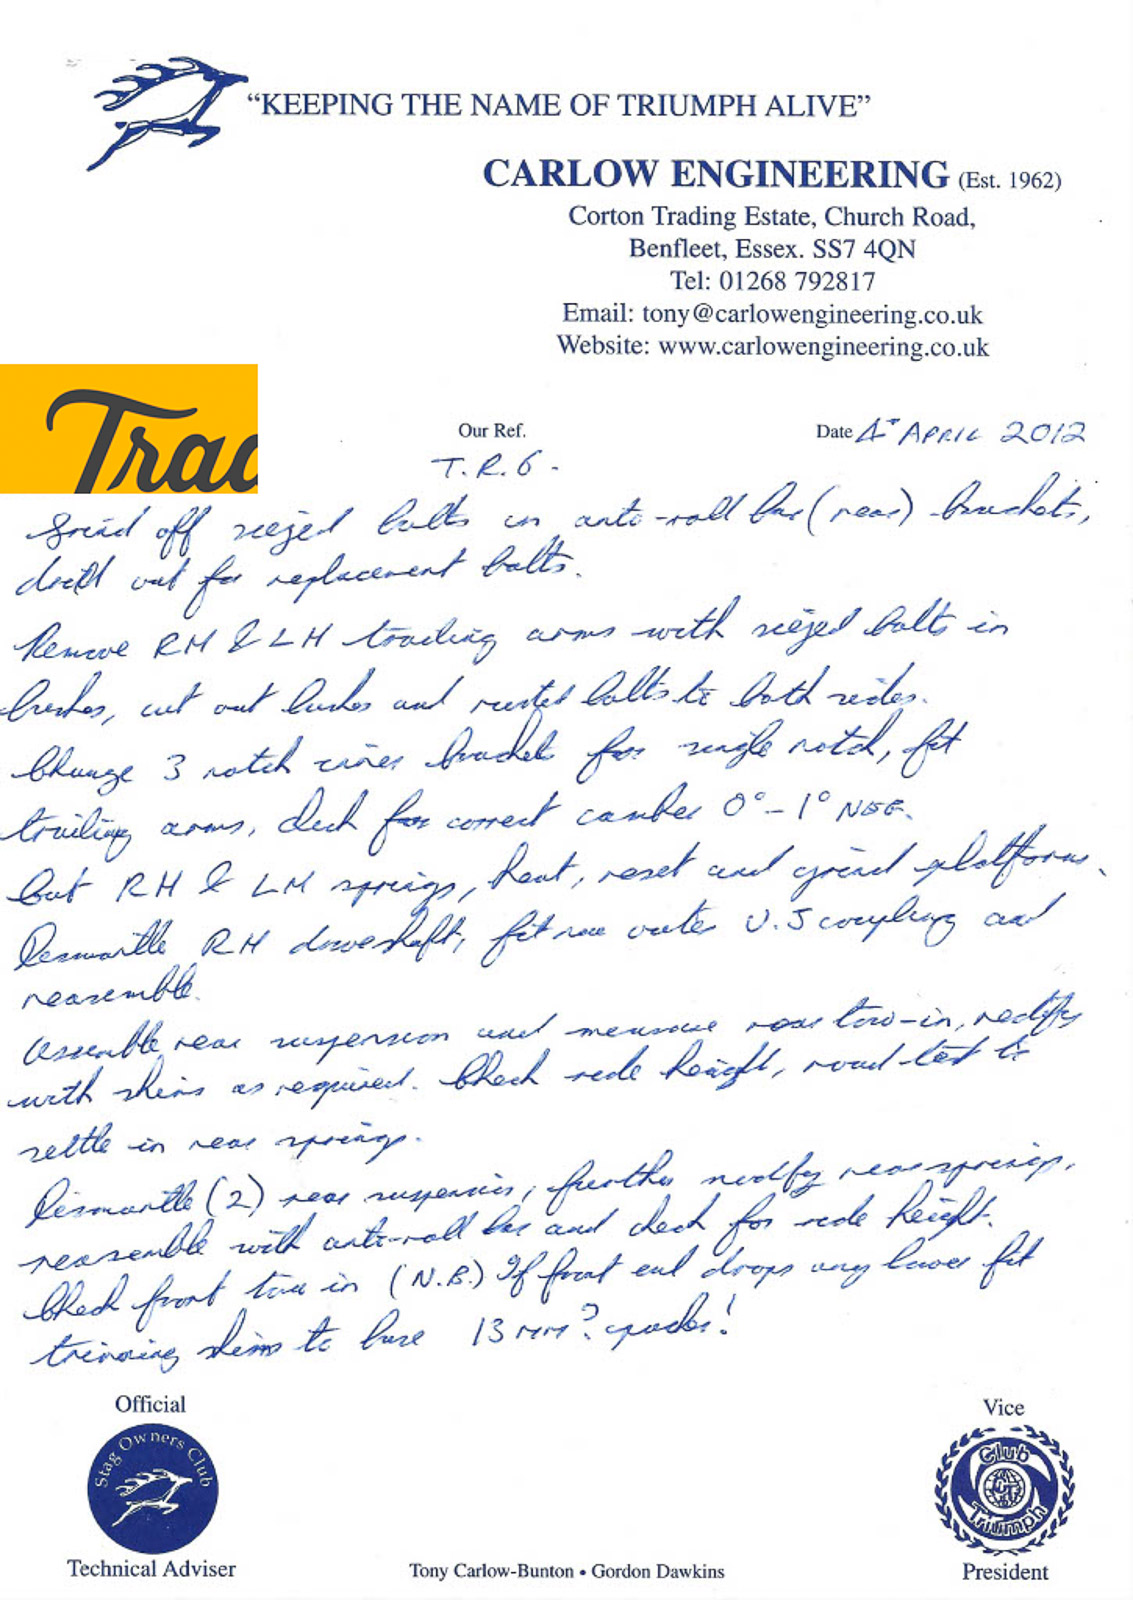 "KEEPING THE NAME OF TRIUMPH ALIVE"
CARLOW ENGINEERING (Est. 1962)
Corton Trading Estate, Church Road,
Benfleet, Essex. SS7 4QN
Tel: 01268 792817
Email: tony@carlowengineering.co.uk
Website: www.carlowengineering.co.uk
Trad
Our Ref.
Date 4th APRIL 2012
T.R.6.
Grind off siezed bolts in anti-roll bar (rear) brackets,
drill out for replacement bolts.
Remove RH & LH trailing arms with siezed bolts in
bushes, cut out bushes and bolts to both sides.
Change 3 notch inner brackets for single notch, fit
trailing arms, check for correct camber 0° - 1° NEG.
Cut RH & LH springs, heat, reset and grind platforms.
Dismantle RH driveshaft, fit new outer U.J coupling and
reasemble.
Assemble rear suspension and measure rear tow-in, rectify
with shims as required. Check ride height, road test to
settle in rear springs.
Dismantle (2) rear suspension, further modify rear springs,
reasemble with anti-roll bar and check for ride height.
Check front tow in (N.B.) If front end drops any lower fit
trimming shims to base 13 mm?
Official
Stag Owners Club
Technical Adviser
Tony Carlow-Bunton • Gordon Dawkins
Vice
Club
CT
Triumph
President